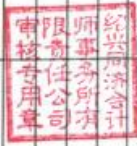 绍兴济会计
师事务所有
限责任公司
审核专用章